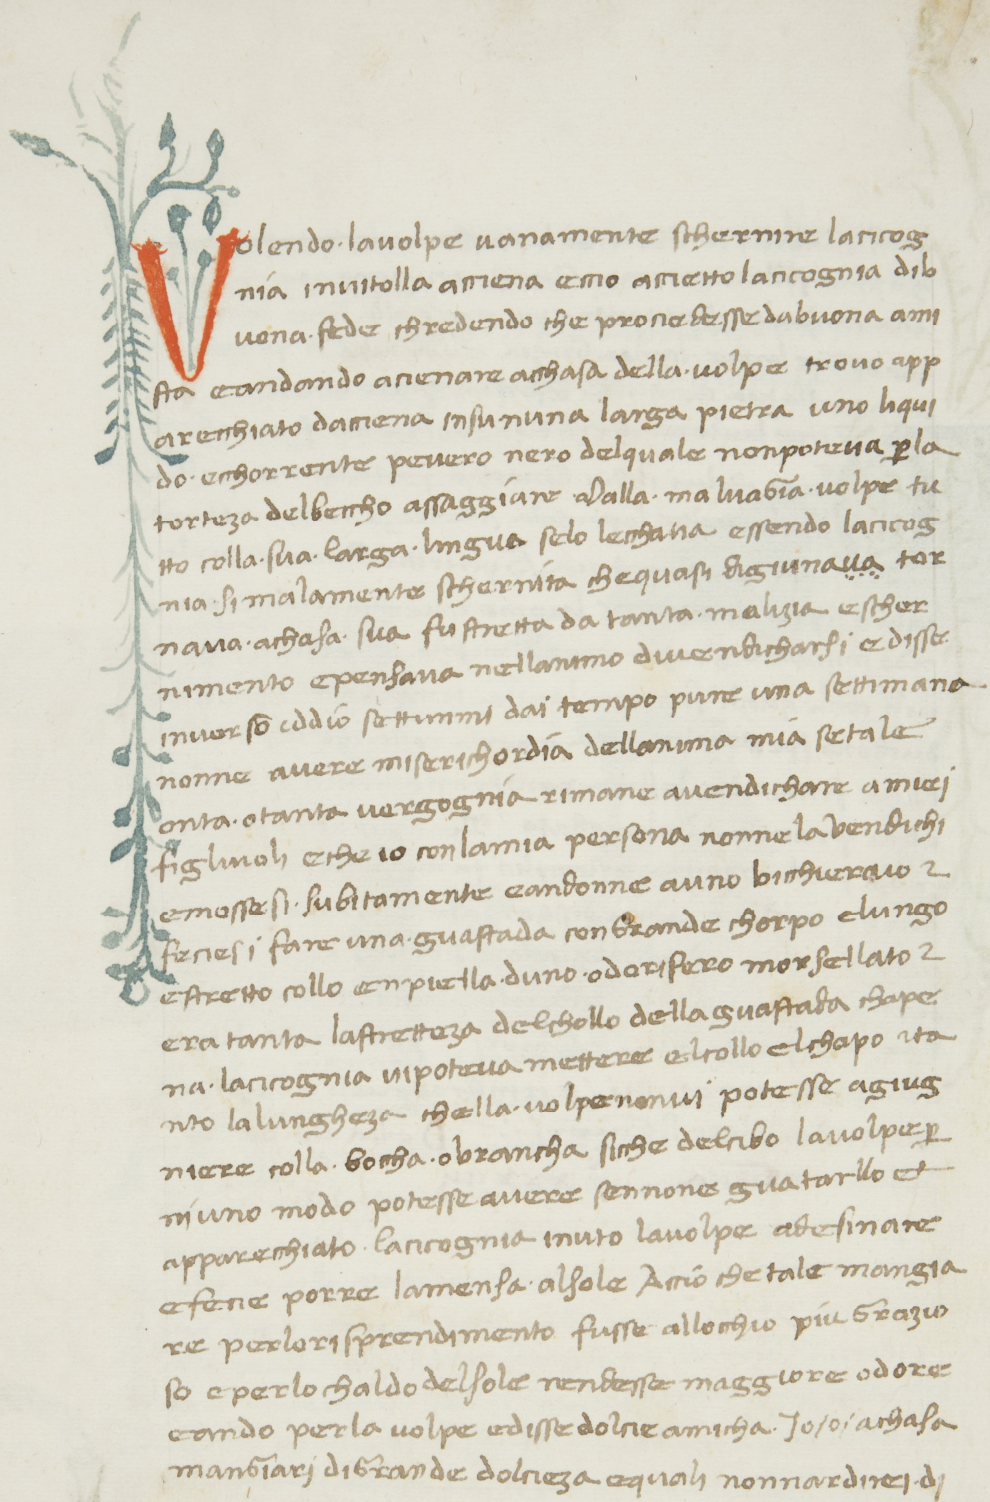 Volendo · lavolpe vanamente schernire lacicog
nia invitolla acciena eccio accietto lacicognia dib
vona · fede chredendo che prociedesse dabvona ami
sta eandando acienare acchasa della · volpe trovo app
arecchiato dacciena insununa larga pietra uno liqui
do · echorrente pevero nero delquale nonpoteva ꝑla
torteza delbeccho assaggiare · Dalla · malvagia · volpe tu
tto colla · sua · larga · lingua selo lecchava essendo lacicog
nia · si malamente schernita chequasi digiunava tor
nava · achasa · sua fu stretta da tanta · malizia e scher
nimento epensava nellanimo divendicharsi edisse
inverso iddio settunmi dai tempo pure una settimana
nonne avere miserichordia dellanima mia setale
onta · otanta vergognia rimane avendichare amiei
figliuoli eche io conlamia persona nonnela vendichi
emossesi · subitamente eandonne auno bicchieraio ⁊
feciesi fare una · guastada congrande chorpo elungo
estretto collo enpiella · duno · oderifero morsellato ⁊
era tanta lastretteza delchollo della guastada chape
na · lacicognia vipoteva mettere elcollo elchapo ⁊ta
nto lalungheza chella · volpe nonvi potesse agiug
niere colla · boccha · obrancha sicche delcibo lavolpe ꝑ
niuno modo potesse avere sennone guatarllo et
apparecchiato · lacicognia invito lavolpe adesinare
efecie porre lamensa · alsole Accio che tale mangia
re perlorisprendimento fusse allocchio piu grazio
so eperlo chaldo delsole rendesse maggiore odore
eando perla volpe edisse dolcie amicha · Io oi achasa
mangiari digrande dolcieza equali nonnardirei · di